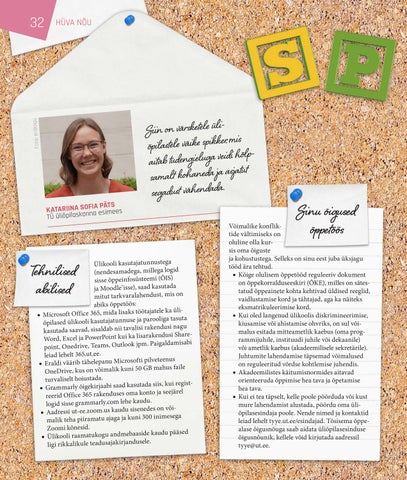 32 HÜVA NÕU
S P
Siin on värsketele üli-
õpilastele väike spikker, mis
aitab tudengieluga veidi hõlp-
samalt kohaneda ja asjatut
segadust vähendada.
KATARIINA SOFIA PÄTS
TÜ üliõpilaskonna esimees
Tehnilised
abilised
Ülikooli kasutajatunnustega
(nendesamadega, millega logid
sisse õppeinfosüsteemi (ÕIS)
ja Moodle'isse), saad kasutada
mitut tarkvaralahendust, mis on
abiks õppetöös:
• Microsoft Office 365, mida lisaks töötajatele ka üli-
õpilased ülikooli kasutajatunnuse ja parooliga tasuta
kasutada saavad, sisaldab nii tavalisi rakendusi nagu
Word, Excel ja PowerPoint kui ka lisarakendusi Share-
point, Onedrive, Teams, Outlook jpm. Paigaldamisabi
leiad lehelt 365.ut.ee.
• Eraldi väärib tähelepanu Microsofti pilveteenus
OneDrive, kus on võimalik kuni 50 GB mahus faile
turvaliselt hoiustada.
• Grammarly õigekirjaabi saad kasutada siis, kui regist-
reerid Office 365 rakenduses oma konto ja seejärel
logid sisse grammarly.com lehe kaudu.
• Aadressi ut-ee.zoom.us kaudu sisenedes on või-
malik teha piiramatu ajaga ja kuni 300 inimesega
Zoomi kõnesid.
• Ülikooli raamatukogu andmebaaside kaudu pääsed
ligi rikkalikule teadusajakirjandusele.
Sinu õigused
õppetöös
Võimalike konflik-
tide vältimiseks on
oluline olla kur-
sis oma õiguste
ja kohustustega. Selleks on sinu eest juba üksjagu
tööd ära tehtud.
• Kõige olulisem õppetööd reguleeriv dokument
on õppekorralduseeskiri (ÕKE), milles on sätes-
tatud õppeainete kohta kehtivad üldised reeglid,
vaidlustamise kord ja tähtajad, aga ka näiteks
eksmatrikuleerimise kord.
• Kui oled langenud ülikoolis diskrimineerimise,
kiusamise või ahistamise ohvriks, on sul või-
malus esitada mitteametlik kaebus (oma prog-
rammijuhile, instituudi juhile või dekaanile)
või ametlik kaebus (akadeemilisele sekretärile).
Juhtumite lahendamise täpsemad võimalused
on reguleeritud võrdse kohtlemise juhendis.
• Akadeemilistes käitumisnormides aitavad
orienteeruda õppimise hea tava ja õpetamise
hea tava.
• Kui ei tea täpselt, kelle poole pöörduda või kust
mure lahendamist alustada, pöördu oma üli-
õpilasesindaja poole. Nende nimed ja kontaktid
leiad lehelt tyye.ut.ee/esindajad. Tõsisema õppe-
alase õigusnõuga saab aidata üliõpilasesinduse
õigusnõunik, kellele võid kirjutada aadressil
tyye@ut.ee.